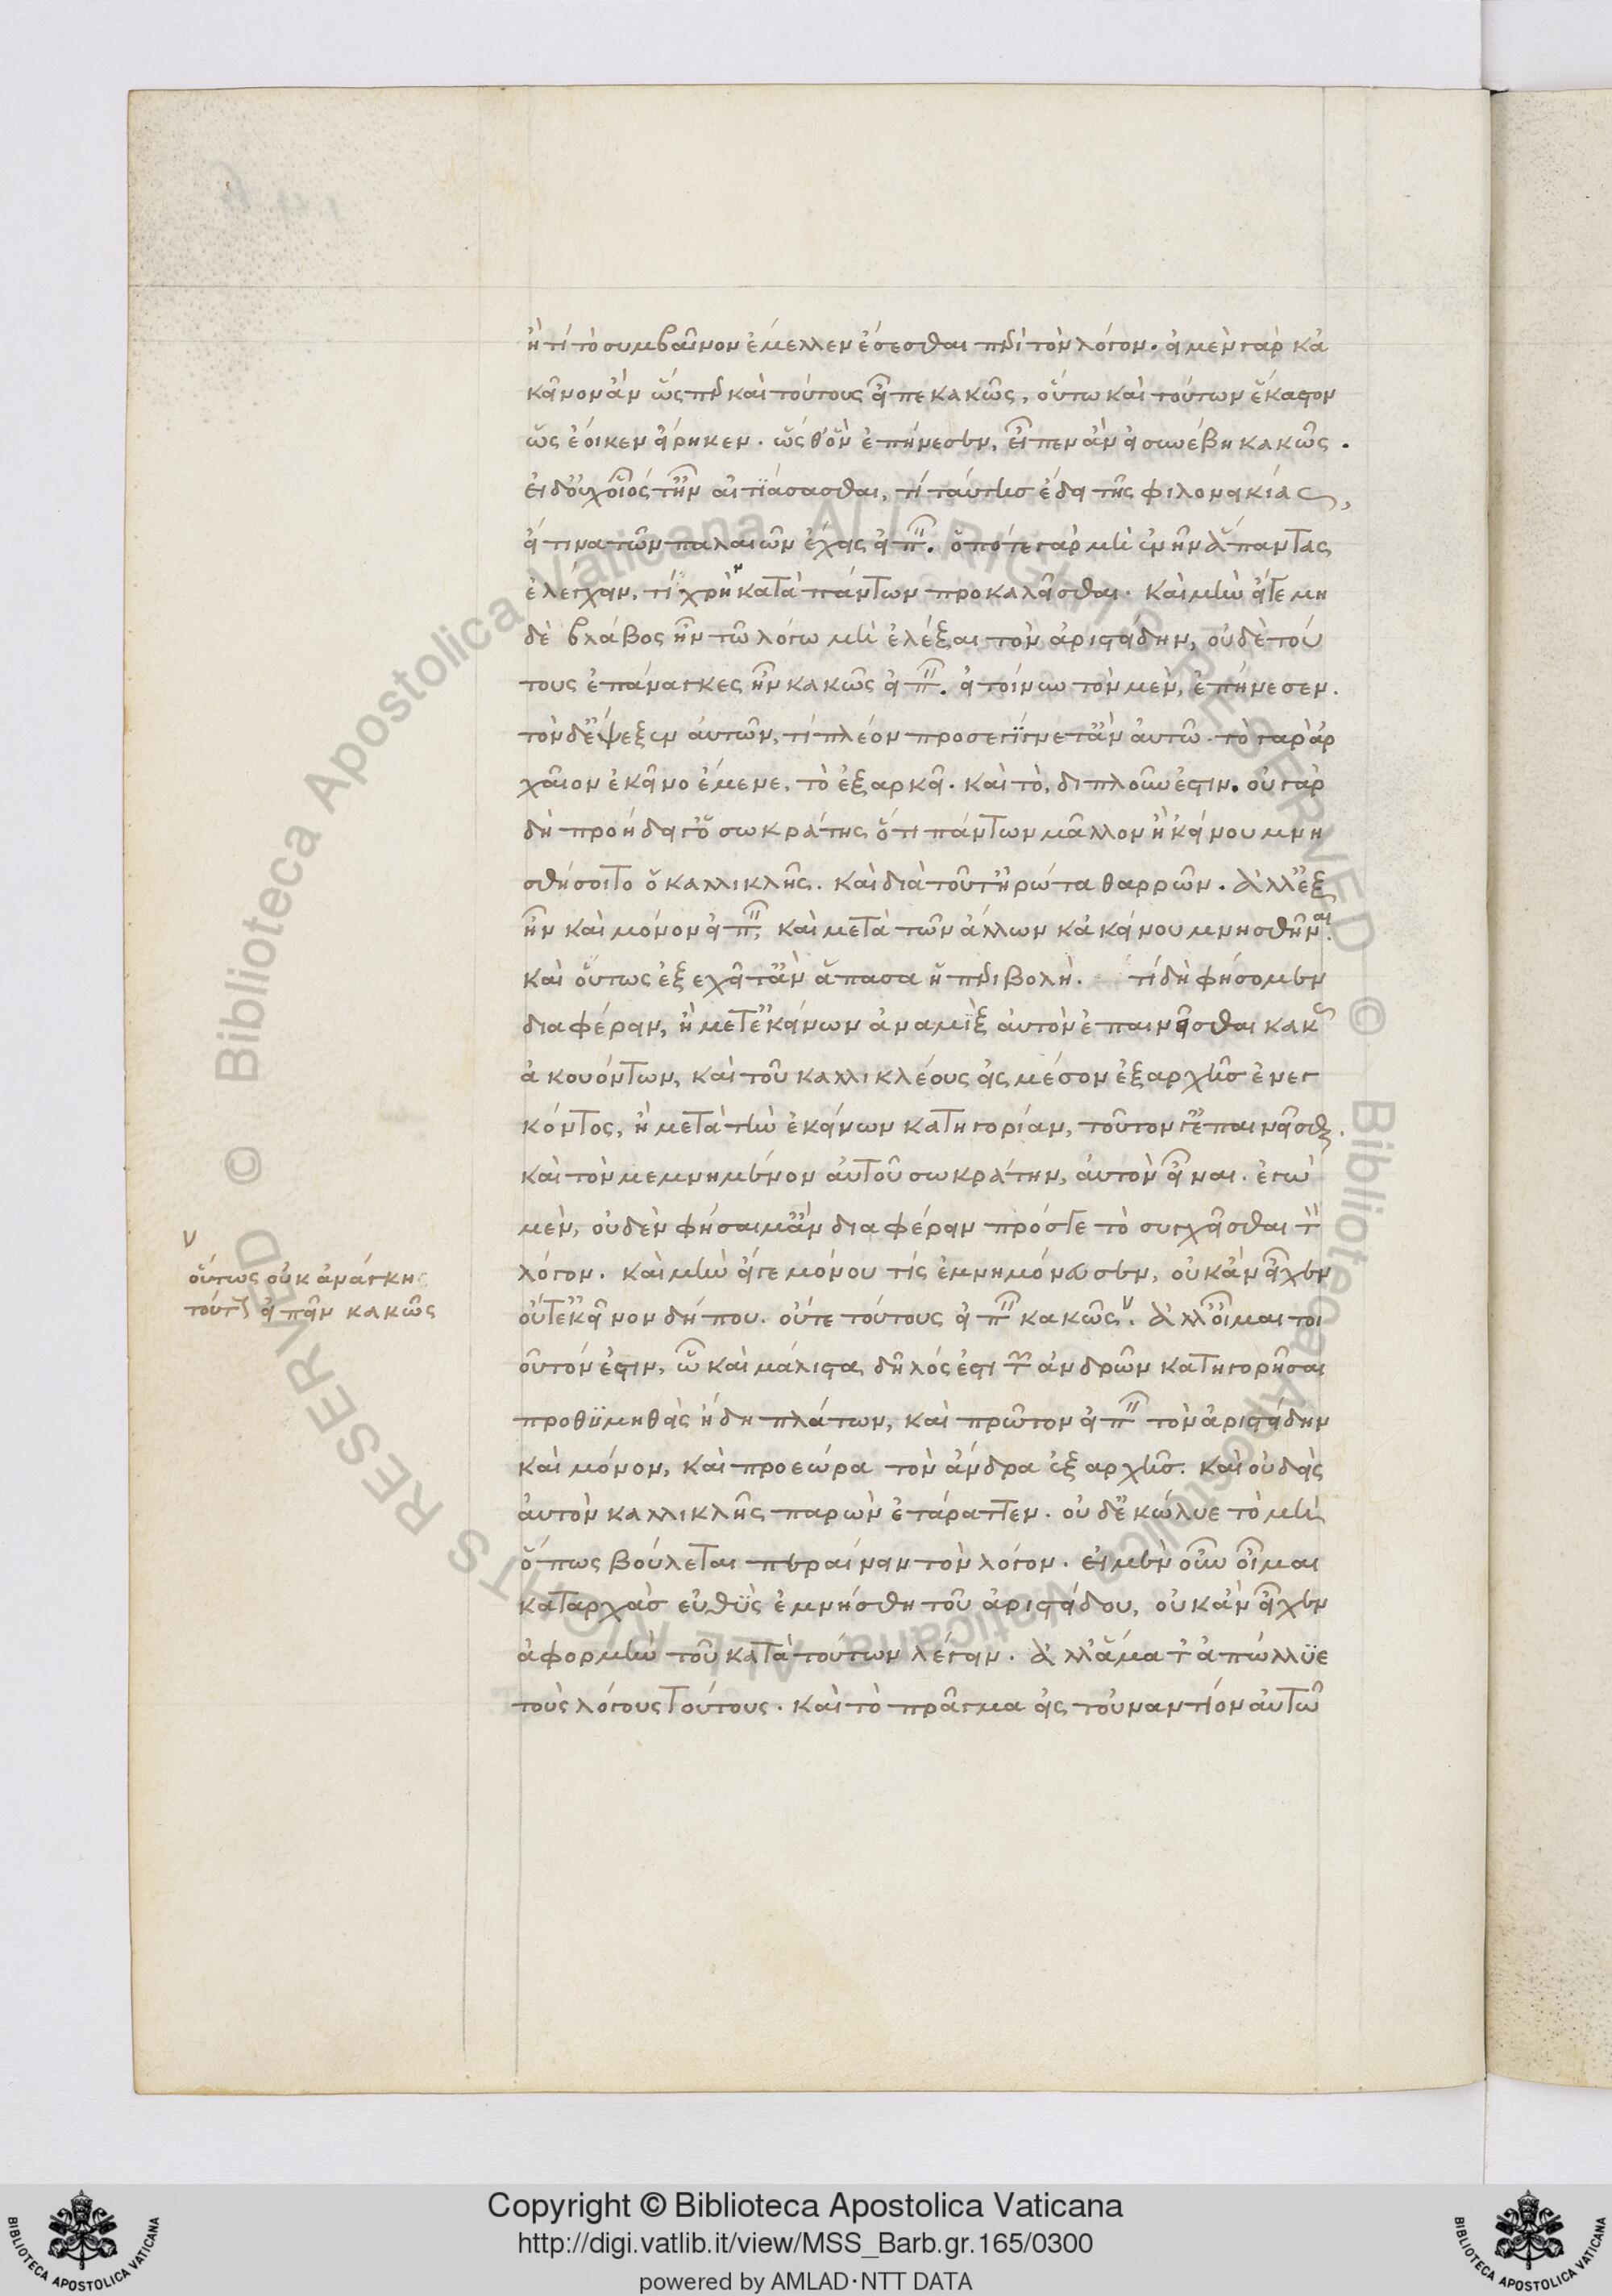 ἢ τί τὸ συμβαῖνον ἔμελλεν ἔσεσθαι περὶ τὸν λόγον. εἰ μὲν γὰρ κἀ
κεῖνον ἂν ὥσπερ καὶ τούτους εἶπε κακῶς, οὕτω καὶ τούτων ἕκαστον
ὡς ἔοικεν εἴρηκεν. ὡς θ' ὃν ἐπῄνεσεν, εἶπεν ἂν εἰ συνέβη κακῶς.
εἰ δ' οὐχ οἷός τ' ἦν αἰτιάσασθαι, τί ταύτης ἔδει τῆς φιλονεικίας,
εἴ τινα τῶν παλαιῶν ἔχεις εἰπεῖν. ὁπότε γὰρ μὴ ἐνῆν ἅπαντας
ἐλέγχειν, τί χρῆν κατὰ πάντων προκαλεῖσθαι. καὶ μὴν εἴτε μη
δὲ βλάβος ἦν τῶ λόγω μὴ ἐλέξαι τὸν ἀριστείδην, οὐδὲ τού
τους ἐπάναγκες ἦν κακῶς εἰπεῖν. εἰ τοίνυν τὸν μὲν, ἐπῄνεσεν.
τὸν δ' ἔψεξεν αὐτῶν, τί πλέον προσεγίγνετ' ἂν αὐτῶ. τὸ γὰρ ἀρ
χαῖον ἐκεῖνο ἔμενε, τὸ ἐξαρκεῖ. καὶ τὸ, διπλοῦν ἐστιν. οὐ γὰρ
δὴ προήδει γ' ὁ σωκράτης ὅτι πάντων μᾶλλον ἢ 'κείνου μνη
σθήσοιτο ὁ καλλικλῆς. καὶ διὰ τοῦτ' ἠρώτα θαρρῶν. ἀλλ' ἐξ
ῆν καὶ μόνον εἰπεῖν, καὶ μετὰ τῶν ἄλλων κἀκείνου μνησθῆναι.
καὶ οὕτως ἐξεχεῖτ' ἂν ἅπασα ἡ περιβολή. τί δὴ φήσομεν
διαφέρειν, ἢ μετ' ἐκείνων ἀναμὶξ αὐτὸν ἐπαινεῖσθαι κακῶς
ἀκουόντων, καὶ τοῦ καλλικλέους εἰς μέσον ἐξαρχῆς ἐνεγ
κόντος, ἢ μετὰ τὴν ἐκείνων κατηγορίαν, τοῦτον γ' ἐπαινεῖσθαι.
καὶ τὸν μεμνημένον αὐτοῦ σωκράτην, αὐτὸν εἶναι. ἐγὼ
μὲν, οὐδὲν φήσαιμ' ἂν διαφέρειν πρός γε τὸ συγχεῖσθαι τὸν
λόγον. καὶ μὴν εἴγε μόνου τίς ἐμνημόνευσεν, οὐκ ἂν εἶχεν
οὔτ' ἐκεῖνον δήπου. οὔτε τούτους εἰπεῖν κακῶς. ἀλλ' οἶμαι τοι
οῦτόν ἐστιν, ὧ καὶ μάλιστα δῆλός ἐστι τῶν ἀνδρῶν κατηγορῆσαι
προθυμηθεὶς ἤδη πλάτων, καὶ πρῶτον εἰπεῖν τὸν ἀριστείδην
καὶ μόνον, καὶ προεώρα τὸν ἄνδρα ἐξ αρχῆς. καὶ οὐδεὶς
αὐτὸν καλλικλῆς παρὼν ἐτάραττεν. οὐδ' ἐκώλυε τὸ μὴ
ὅπως βούλεται περαίνειν τὸν λόγον. εἰ μὲν οὖν οἶμαι
καταρχὰς εὐθὺς ἐμνήσθη τοῦ ἀριστείδου, οὐκ ἂν εἶχεν
ἀφορμὴν τοῦ κατὰ τούτων λέγειν. ἀλλ' ἅμα τ' ἀπώλλυε
τοὺς λόγους τούτους. καὶ τὸ πρᾶγμα εἰς τοὐναντίον αὐτῶ
οὕτως οὐκ ἀνάγκη
τούτους εἰπεῖν κακῶς
Copyright © Biblioteca Apostolica Vaticana
http://digi.vatlib.it/view/MSS_Barb.gr.165/0300
powered by AMLAD·NTT DATA